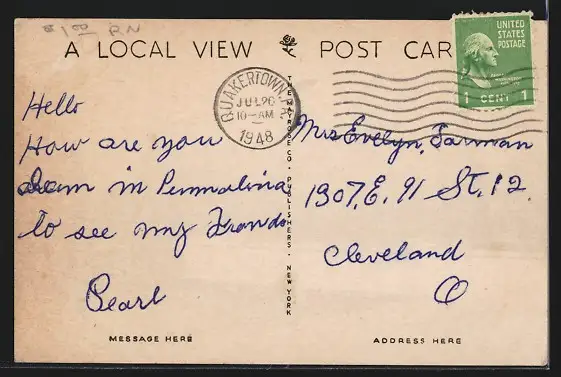 $1.00 RN
A LOCAL VIEW POST CAR
UNITED
STATES
POSTAGE
1 CENT 1
QUAKERTOWN, PA.
JUL 20
10-AM
1948
Hello
How are you
in Pennsylvina
to see my Friends
Pearl
THE MAYROSE CO. PUBLISHERS. NEW YORK
Mrs Evelyn, Farman
1907, E. 91 St. 12.
Cleveland
O
MESSAGE HERE
ADDRESS HERE